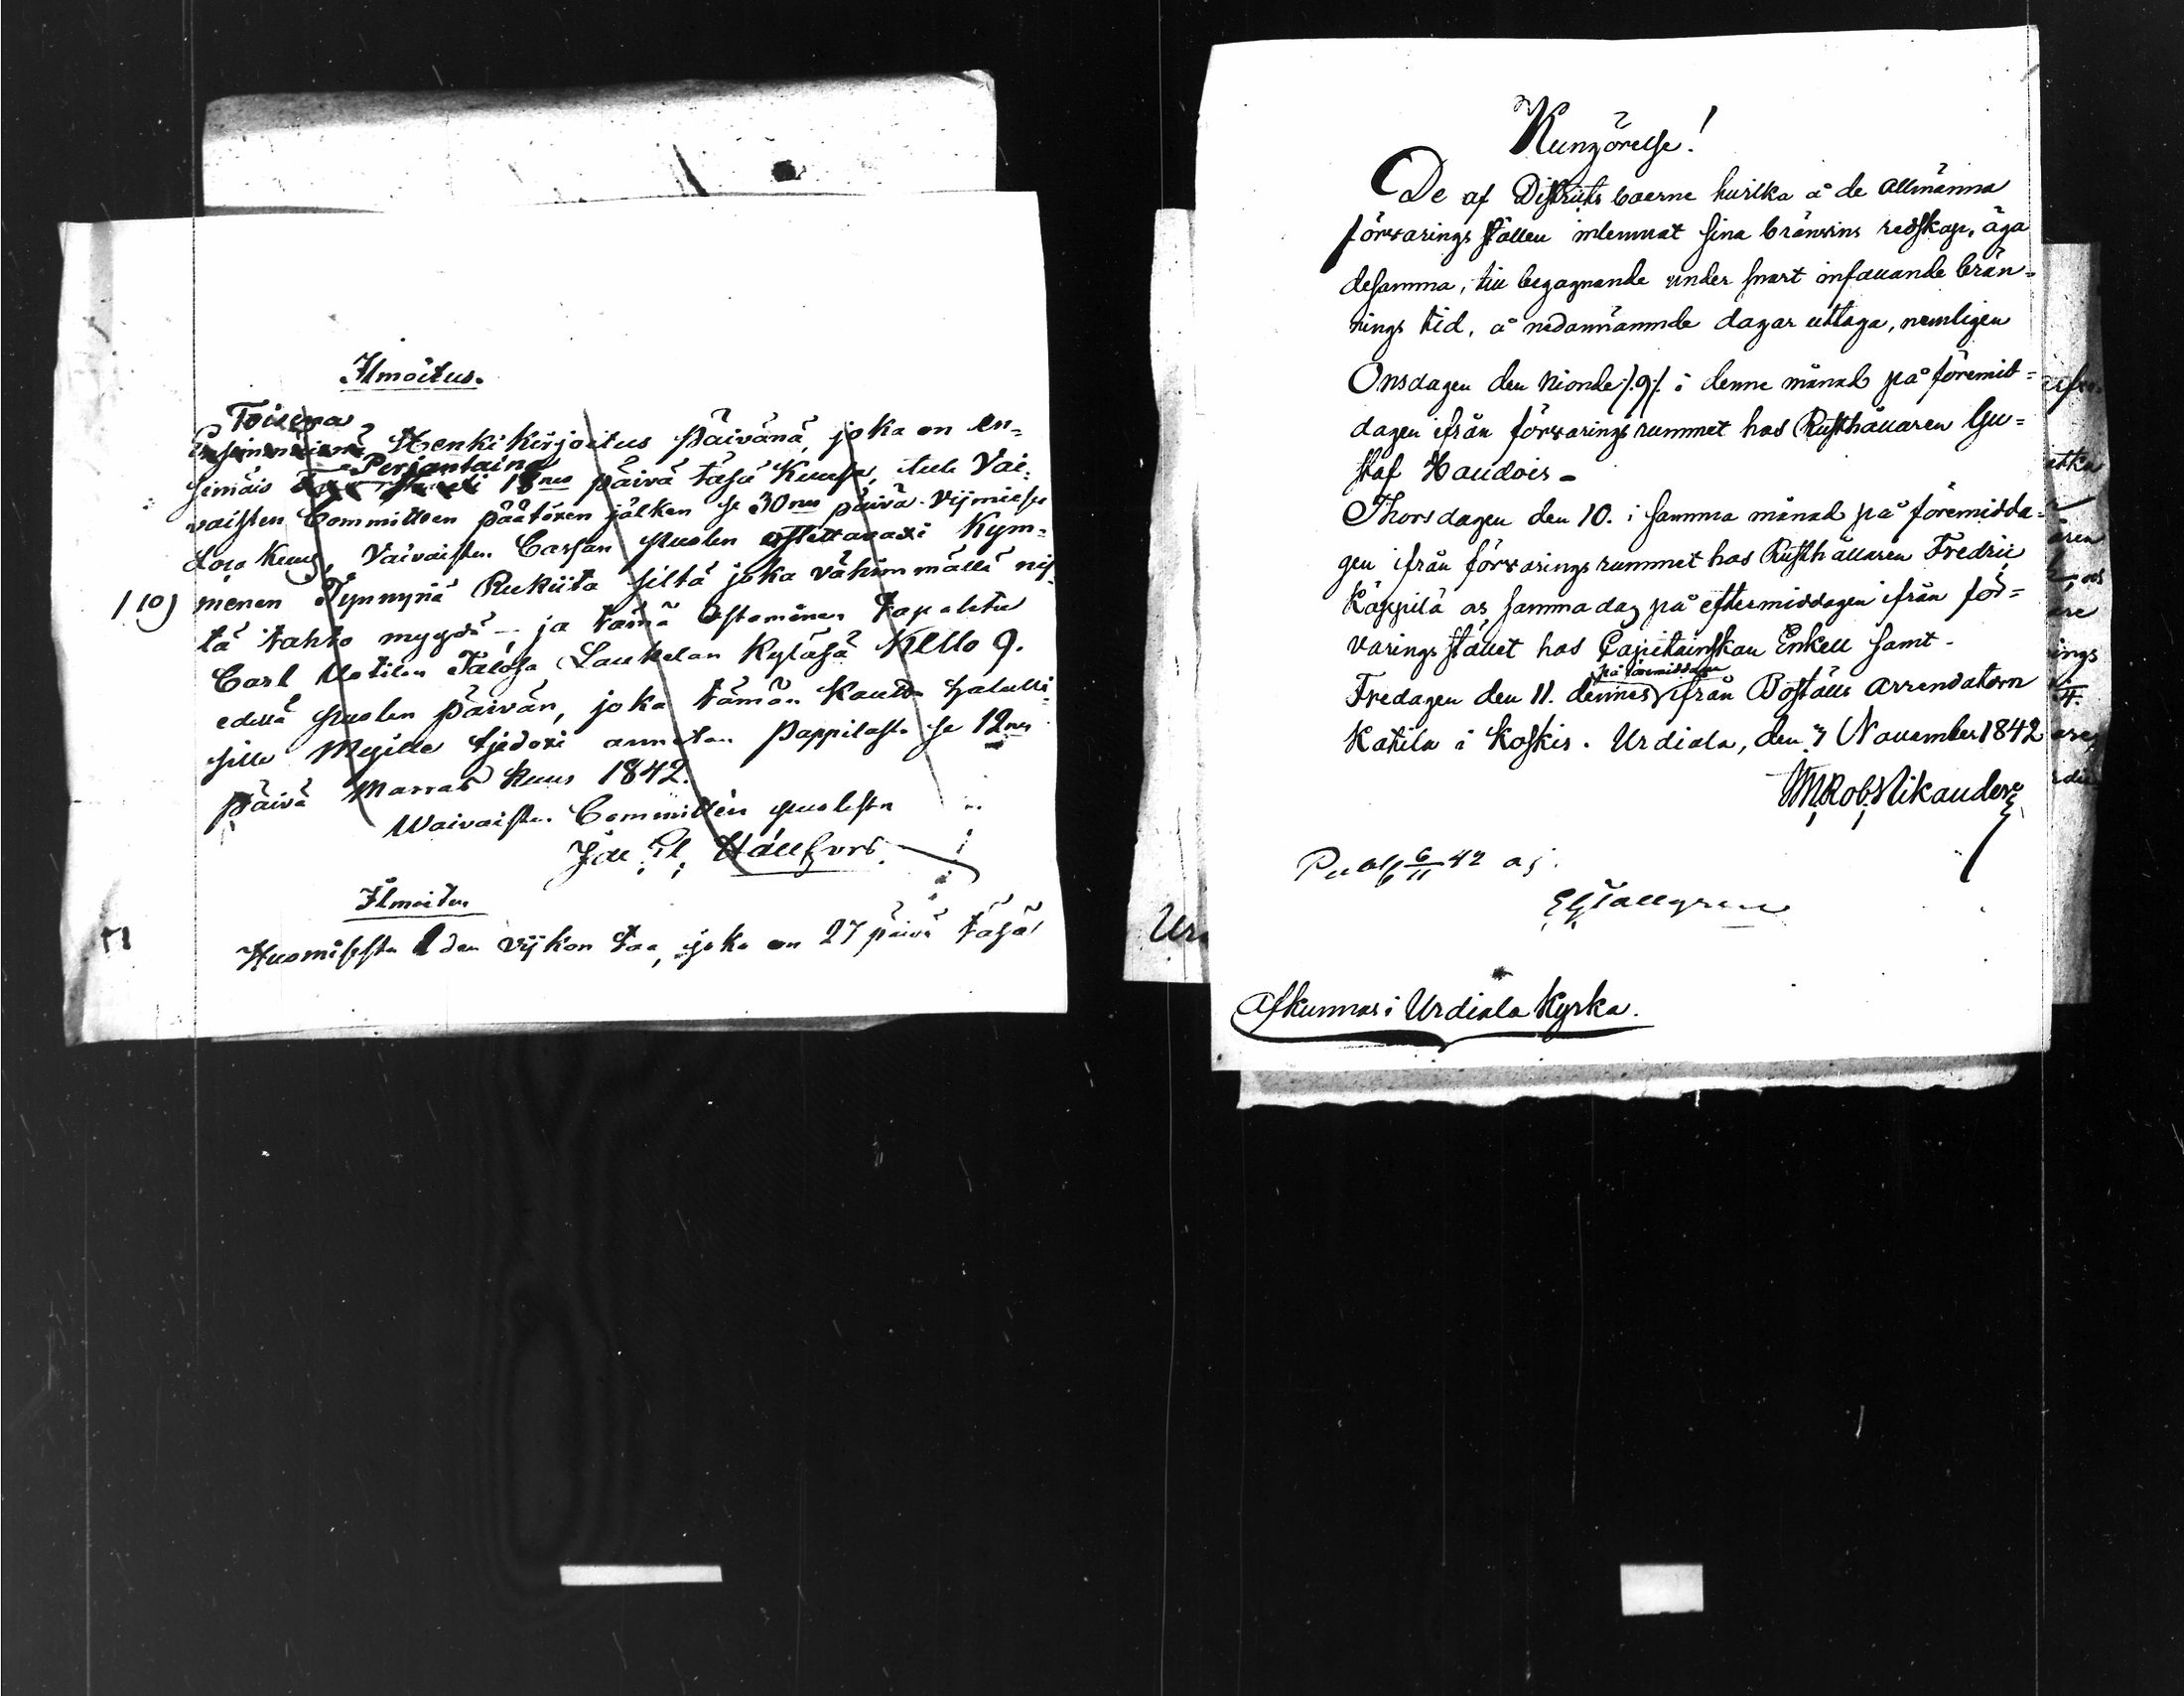 Ilmoitus.
Toisena
Ensimmäisnä Henki kirjoitus päivänä, joka on en=
Perjantaina
simäis 18nes päivä täsä Kuusa, tule Vai=
vaisten Committeen päätöxen jälken se 30nes päivä Vijmeisse
Loca Kuus, Vaivaisten Cassan puolen ostettavaxi Kym=
(10) menen Tynnyriä Rukiita siltä joka vähimmällä nis=
tä tahto myydä — ja tämä Ostaminen tapahtu
Carl Uotilan Talosa Laukelan Kyläsä Kello 9.
edellä puolen päivän, joka tämän kautta halulli=
sille Myjille tjedoxi annetan Pappilasta se 12nes
päivä Marras Kuus 1842.
Waivaisten Committén puolesta
Joh. El. Hällfors
Ilmoitus
Huomisesta den vijkon taa, joka on 27 päivä täsä
Kungörelse!
De af Districts boerne hvilka å de allmänna
förvarings ställen inlemnat sina bränvins redskap, äga
desamma, till begagnande under snart infallande brän=
nings tid, å nedannämnde dagar uttaga, nemligen
Onsdagen den Nionde /:9:/ i denne månad på föremid=
dagen ifrån förvarings rummet hos Rusthållaren Gu=
staf Haudois -
Thorsdagen den 10. i samma månad på föremidda=
gen ifrån förvarings rummet hos Rusthållaren Fredric
Käppilä och samma dag på eftermiddagen ifrån för=
varings stället hos Capitainskan Enkell samt -
på föremiddagen
Fredagen den 11. dennes ifrån Boställs arrendatorn
Katila i Koskis. Urdiala, den 3 November 1842
Rob. Nikander
Publ. 6/11 42 af
EG Tallgren
Afkunnas i Urdiala Kyrka.